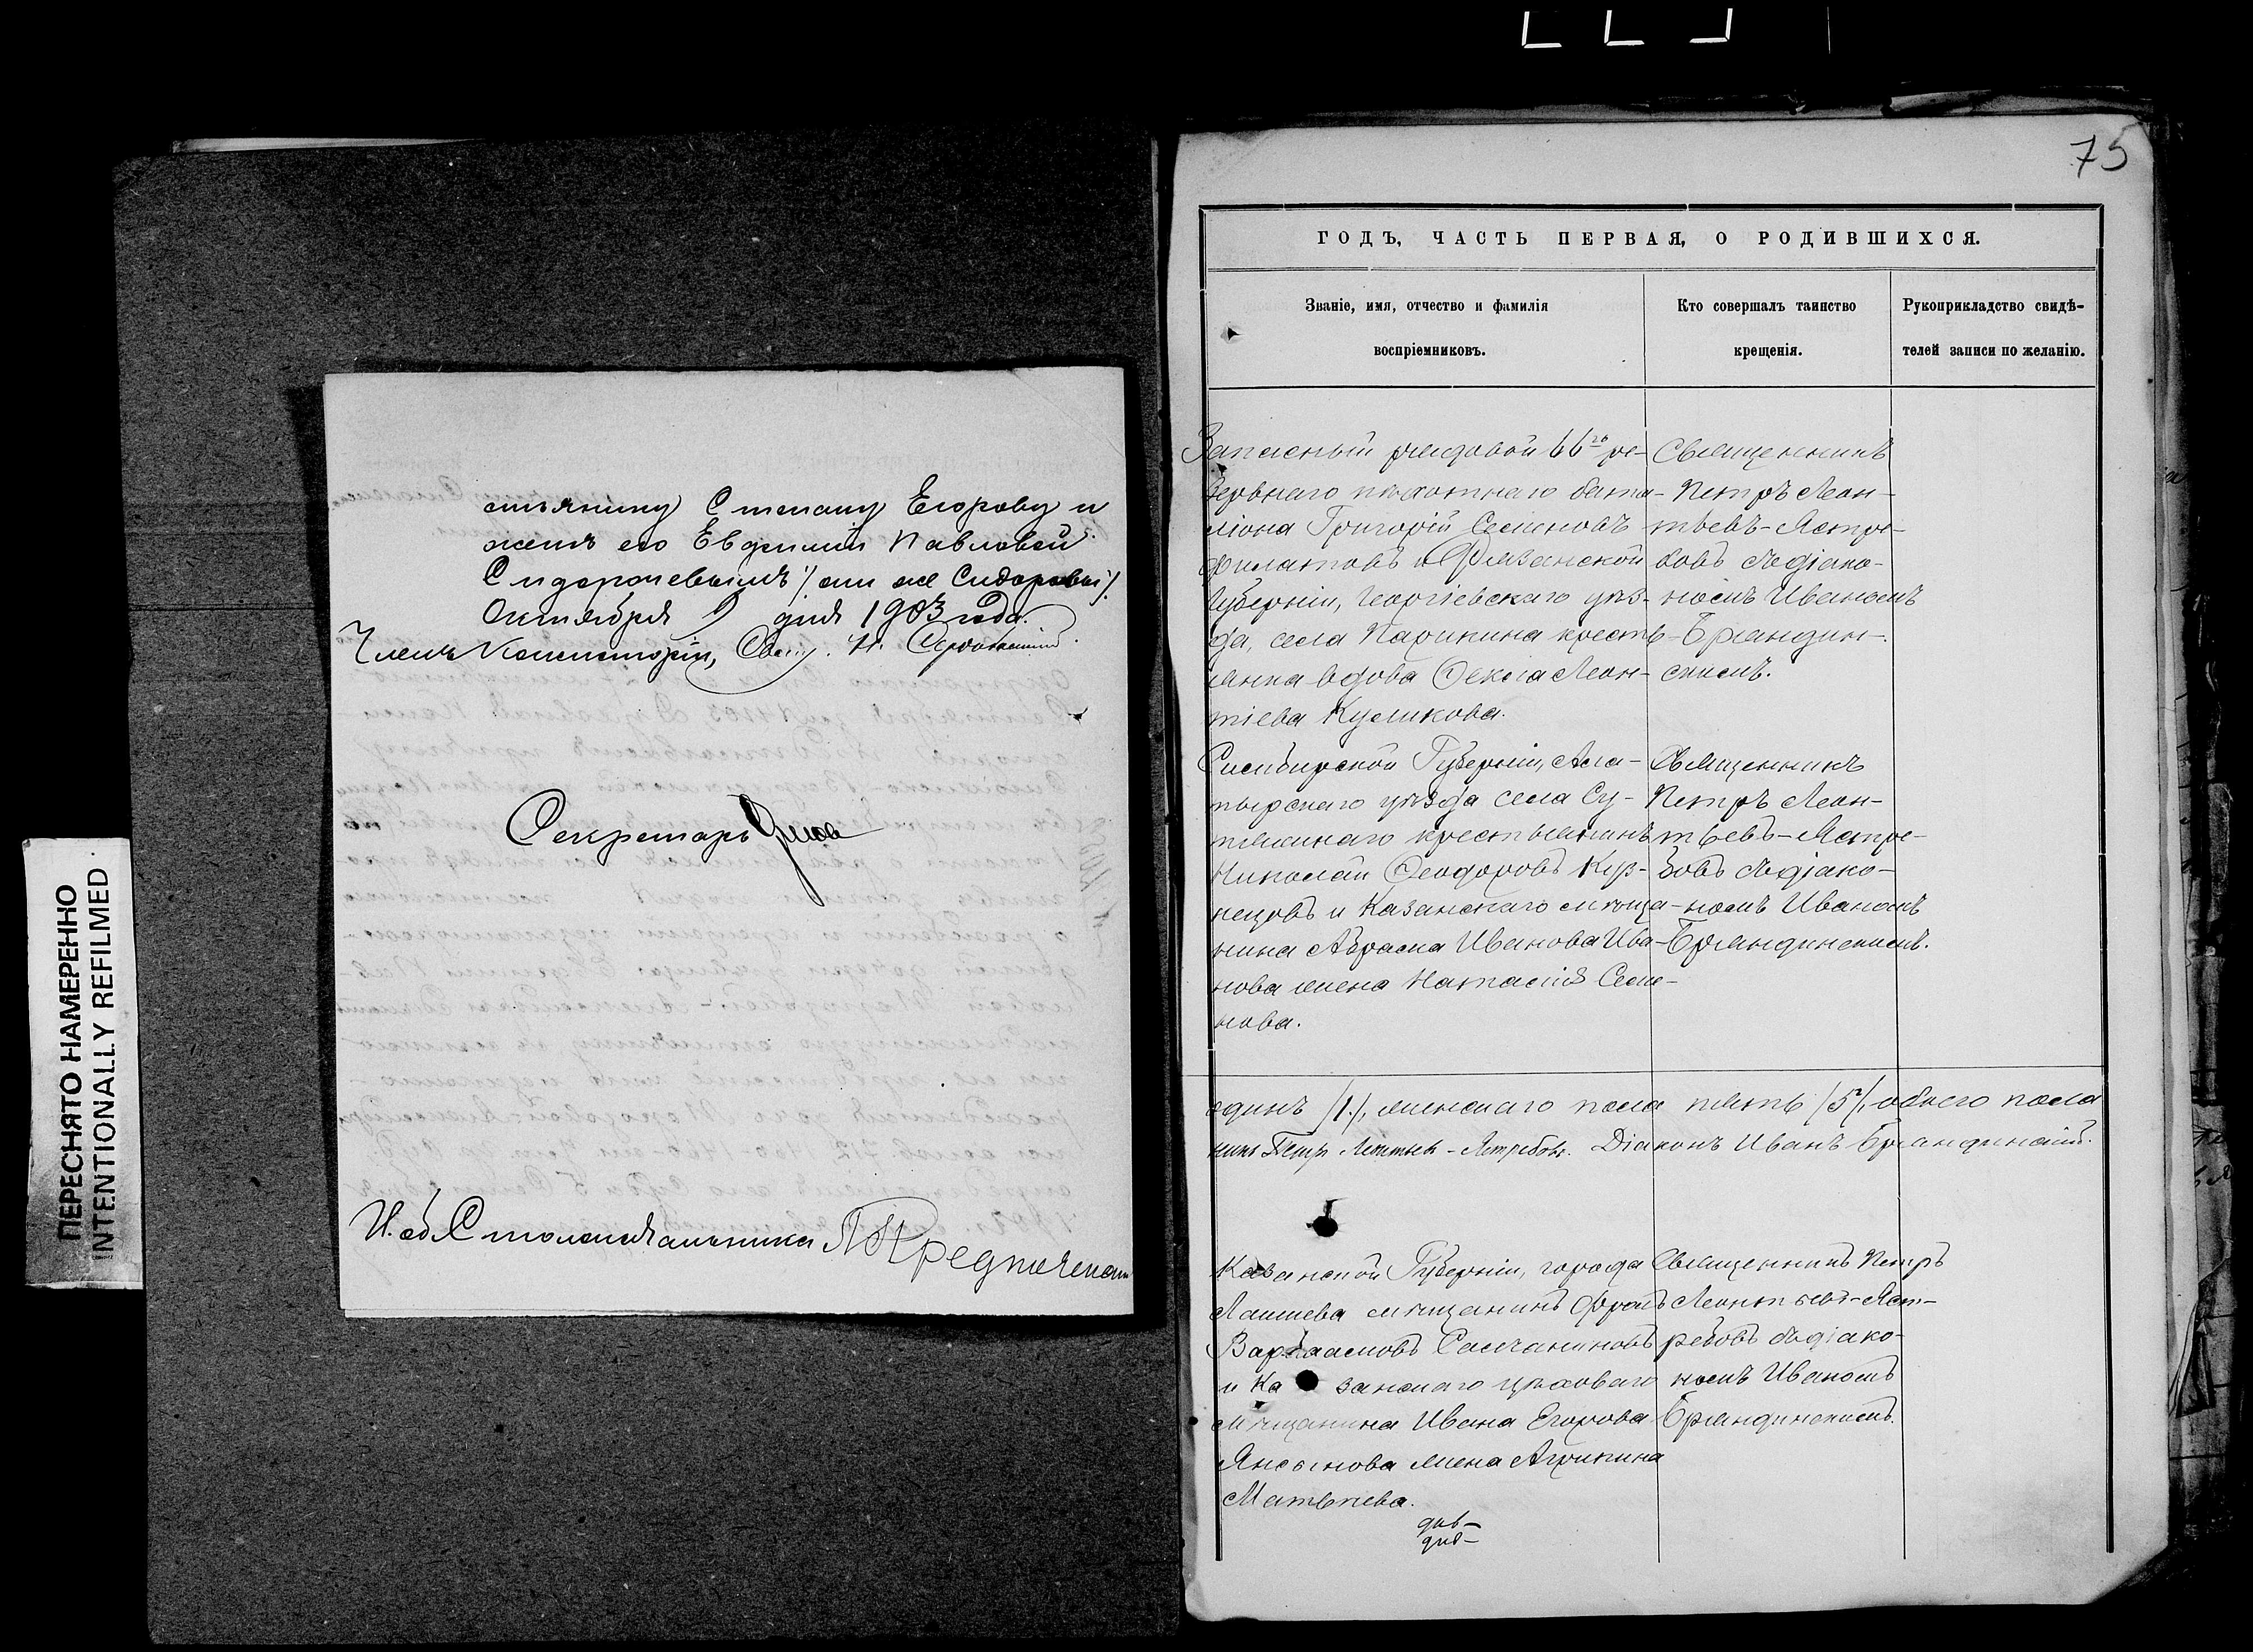 ПЕРЕСНЯТО НАМЕРЕННО
INTENTIONALLY REFILMED
стьянину Степану Егорову и
женѣ его Евдокіи Павловой
Сидоро /они же Сидоровы/.
Октября 9 дня 1903 года.
Членъ Консисторіи, Свящ. Н.
Секретарь
И. об. Столоначальника
75
ГОДЪ, ЧАСТЬ ПЕРВАЯ, О РОДИВШИХСЯ.
Званіе, имя, отчество и фамилія
воспріемниковъ.
Кто совершалъ таинство
крещенія.
Рукоприкладство свидѣ-
телей записи по желанію.
Запасный рядовой 66го ре-
зервнаго пѣхотнаго бата-
ліона Григорій Семеновъ
Филатовъ и
Губерніи, Георгіевскаго уѣз-
да, села крестъ-
янка вдова Ѳекла Леон-
тіева Куликова.
Священникъ
Петръ Леон-
тьевъ-Ястре-
бовъ съ діако-
номъ Иваномъ
Бряндин-
скимъ.
Симбирской Губерніи, Ала-
тырскаго уѣзда села Су-
крестьянинъ
Николай Ѳеодоровъ Куз-
нецовъ и Казанскаго мѣща-
нина Абрама Иванова Ива-
нова жена Наталія Семе-
нова.
Священникъ
Петръ Леон-
тьевъ-Ястре-
бовъ съ діако-
номъ Иваномъ
Бряндинскимъ.
одинъ /1/, женскаго пола пять /5/, обоего пола
никъ Петръ Леонтьев-Ястребовъ. Діаконъ Иванъ Бряндинскій.
Казанской Губерніи, города
Лаишева мѣщанинъ Фролъ
Варлаамовъ Самчаниновъ
и Казанскаго цѣховаго
мѣщанина Ивана Егорова
жена Агрипина
Матвѣева.
Священникъ Петръ
Леонтьевъ-Яст-
ребовъ съ діако-
номъ Иваномъ
Бряндинскимъ.